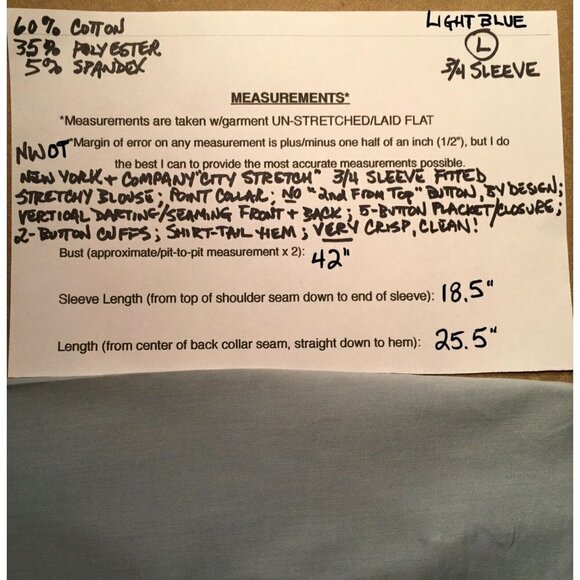 60% COTTON
35% POLYESTER
5% SPANDEX
LIGHT BLUE
L
3/4 SLEEVE
MEASUREMENTS*
*Measurements are taken w/garment UN-STRETCHED/LAID FLAT
*Margin of error on any measurement is plus/minus one half of an inch (1/2"), but I do
the best I can to provide the most accurate measurements possible.
NWOT
NEW YORK + COMPANY "CITY STRETCH" 3/4 SLEEVE FITTED
STRETCHY BLOUSE; POINT COLLAR; NO "2nd FROM TOP" BUTTON, BY DESIGN;
VERTICAL DARTING/SEAMING FRONT + BACK; 5-BUTTON PLACKET/CLOSURE;
2-BUTTON CUFFS; SHIRT-TAIL HEM; VERY CRISP, CLEAN!
Bust (approximate/pit-to-pit measurement x 2): 42"
Sleeve Length (from top of shoulder seam down to end of sleeve): 18.5"
Length (from center of back collar seam, straight down to hem): 25.5"